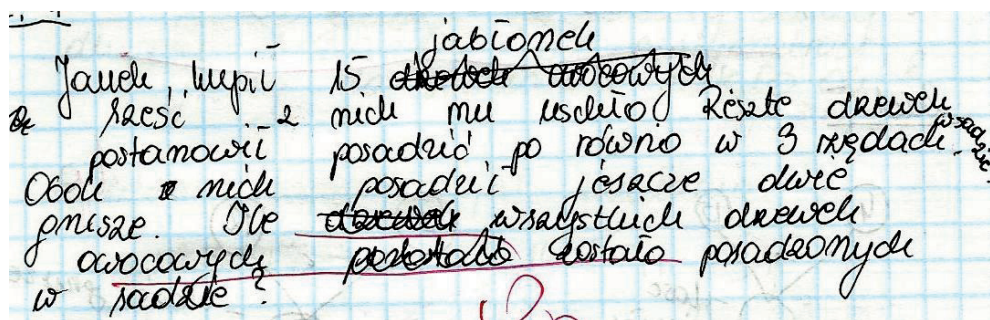 jabłonek
Janek kupił 15 drzewek owocowych
Sześć z nich mu uschło. Resztę drzewek
postanowił posadzić po równo w 3 rzędach w sadzie.
Obok nich posadził jeszcze dwie
grusze. Ile drzewek wszystkich drzewek
owocowych pozostało zostało posadzonych
w sadzie?